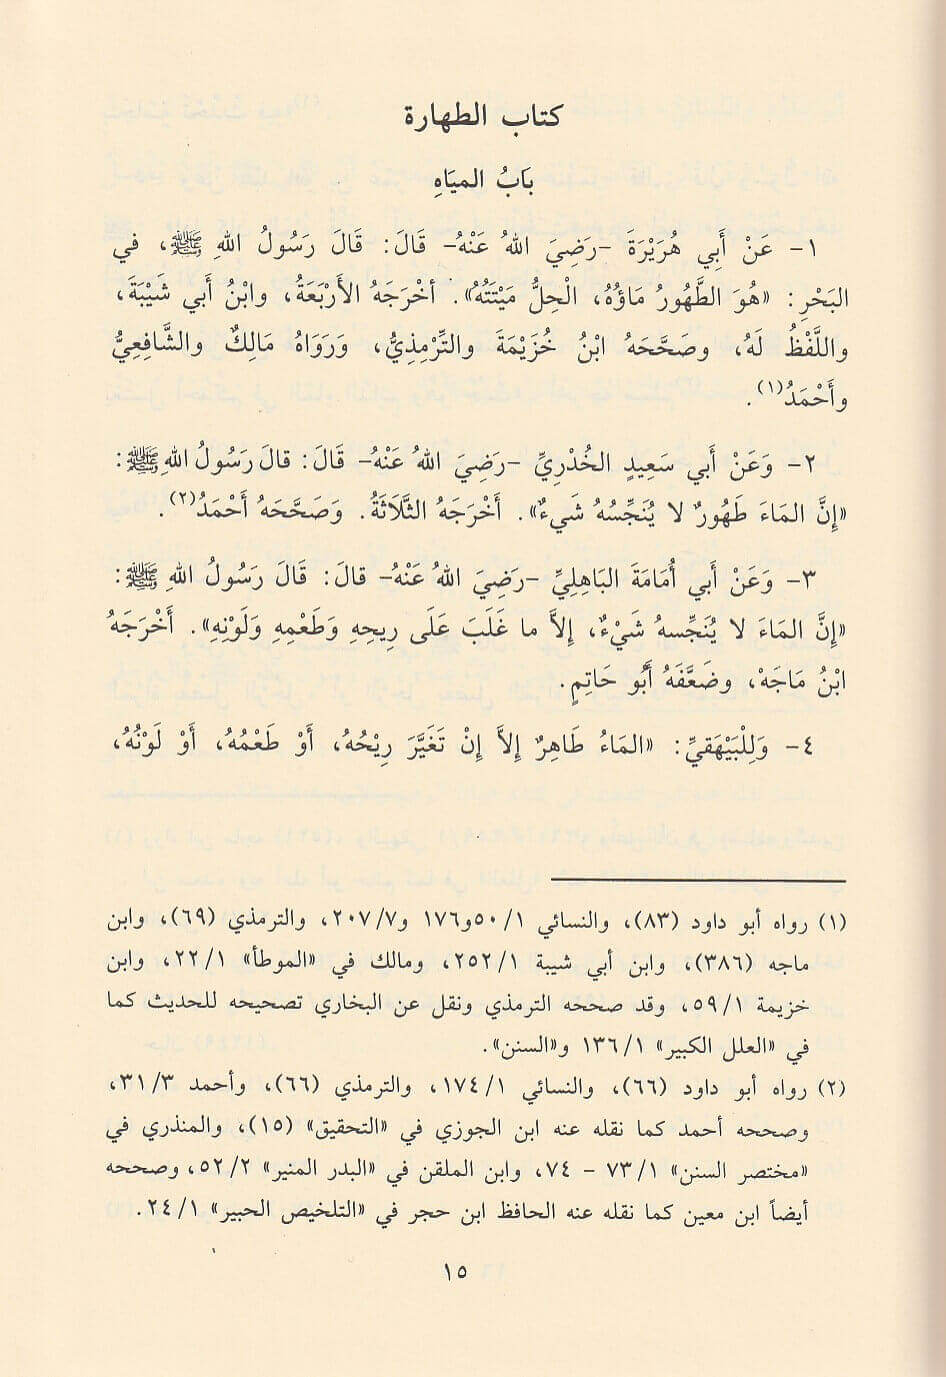 كتاب الطهارة
بَابُ المِيَاهِ
١- عَنْ أَبِي هُرَيْرَةَ -رَضِيَ اللهُ عَنْهُ- قَالَ: قَالَ رَسُولُ اللهِ ﷺ، في
البَحْرِ: «هُوَ الطَّهُورُ مَاؤُهُ، الْحِلُّ مَيْتَتُهُ». أخْرَجَهُ الأَرْبَعَةُ، وابْنُ أَبي شَيْبَةَ،
واللَّفْظُ لَهُ، وصَحَّحَهُ ابْنُ خُزَيْمَةَ والتِّرْمِذِيُّ، وَرَوَاهُ مَالِكٌ والشَّافِعِيُّ
وأَحْمَدُ(١).
٢- وَعَنْ أَبي سَعِيدٍ الخُدْرِيِّ -رَضِيَ اللهُ عَنْهُ- قَالَ: قالَ رَسُولُ اللهِ ﷺ:
«إِنَّ المَاءَ طَهُورٌ لا يُنَجِّسُهُ شَيءٌ». أَخْرَجَهُ الثَّلَاثَةُ. وَصَحَّحَهُ أَحْمَدُ(٢).
٣- وَعَنْ أَبي أُمَامَةَ البَاهِلِيِّ -رَضِيَ اللهُ عَنْهُ- قالَ: قَالَ رَسُولُ اللهِ ﷺ:
«إِنَّ المَاءَ لا يُنَجِّسهُ شَيْءٌ، إِلاَّ ما غَلَبَ عَلَى رِيحِهِ وَطَعْمِهِ وَلَوْنِهِ». أَخْرَجَهُ
ابْنُ مَاجَهْ، وضَعَّفَهُ أَبُو حَاتِمٍ.
٤- وَلِلْبَيْهَقيِّ: «المَاءُ طَاهِرٌ إِلاَّ إِنْ تَغَيَّرَ رِيْحُهُ، أَوْ طَعْمُهُ، أَوْ لَوْنُهُ،
(١) رواه أبو داود (٨٣)، والنسائي ٥٠/١ و١٧٦ و٢٠٧/٧، والترمذي (٦٩)، وابن
ماجه (٣٨٦)، وابن أبي شيبة ٢٥٢/١، ومالك في «الموطأ» ٢٢/١، وابن
خزيمة ٥٩/١، وقد صححه الترمذي ونقل عن البخاري تصحيحه للحديث كما
في «العلل الكبير» ١٣٦/١ و«السنن».
(٢) رواه أبو داود (٦٦)، والنسائي ١٧٤/١، والترمذي (٦٦)، وأحمد ٣١/٣،
وصححه أحمد كما نقله عنه ابن الجوزي في «التحقيق» (١٥)، والمنذري في
«مختصر السنن» ٧٣/١ - ٧٤، وابن الملقن في «البدر المنير» ٥٢/٢، وصححه
أيضاً ابن معين كما نقله عنه الحافظ ابن حجر في «التلخيص الحبير» ٢٤/١.
١٥